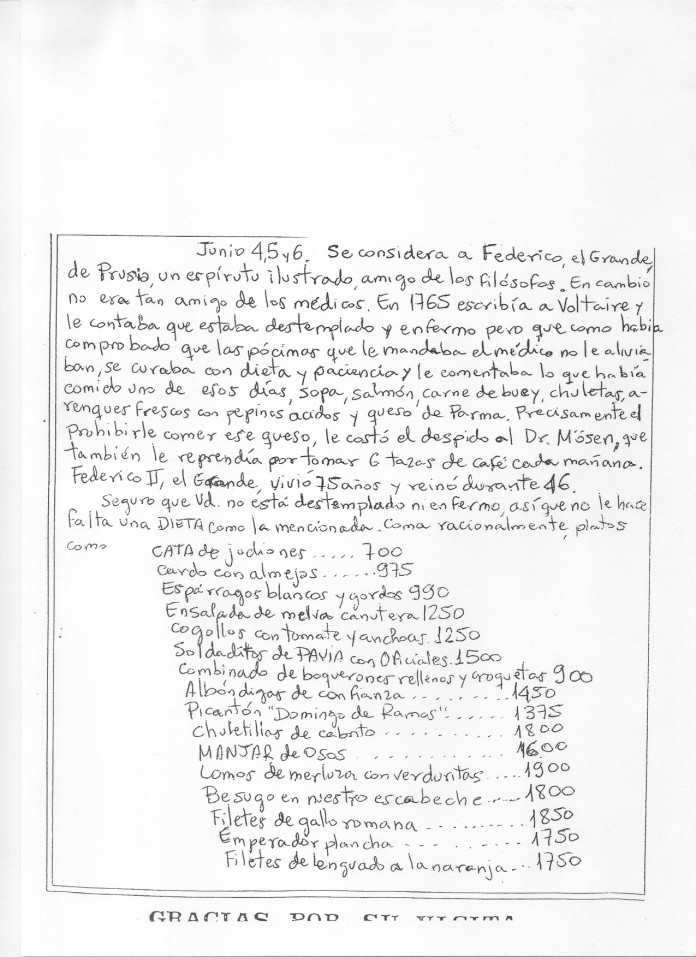 Junio 4,5 y 6. Se considera a Federico, el Grande,
de Prusia, un espírutu ilustrado, amigo de los filósofos. En cambio
no era tan amigo de los médicos. En 1765 escribía a Voltaire y
le contaba que estaba destemplado y enfermo pero que como había
comprobado que las pócimas que le mandaba el médico no le alivia-
ban, se curaba con dieta y paciencia y le comentaba lo que había
comido uno de esos días, sopa, salmón, carne de buey, chuletas, a-
renques frescos con pepinos acidos y queso de Parma. Precisamente el
Prohibirle comer ese queso, le costó el despido al Dr. Mósen, que
también le reprendía por tomar 6 tazas de café cada mañana.
Federico II, el Grande, vivió 75 años y reinó durante 46.
Seguro que Vd. no está destemplado ni enfermo, así que no le hace
falta una DIETA como la mencionada. Coma racionalmente, platos
como CATA de judiones ..... 700
Cardo con almejas ...... 975
Espárragos blancos y gordos 990
Ensalada de melva canutera 1250
Cogollos con tomate y anchoas. 1250
Soldaditos de PAVIA con Oficiales. 1500
Combinado de boquerones rellenos y croquetas 900
Albóndigas de confianza ......... 1450
Picantón "Domingo de Ramos" ...... 1375
Chuletillas de cabrito .......... 1800
MANJAR de Osos ............ 1600
Lomos de merluza con verduritas ..... 1900
Besugo en nuestro escabeche ...... 1800
Filetes de gallo romana .......... 1850
Emperador plancha .......... 1750
Filetes de lenguado a la naranja... 1750
GRACIAS POR SU VISITA